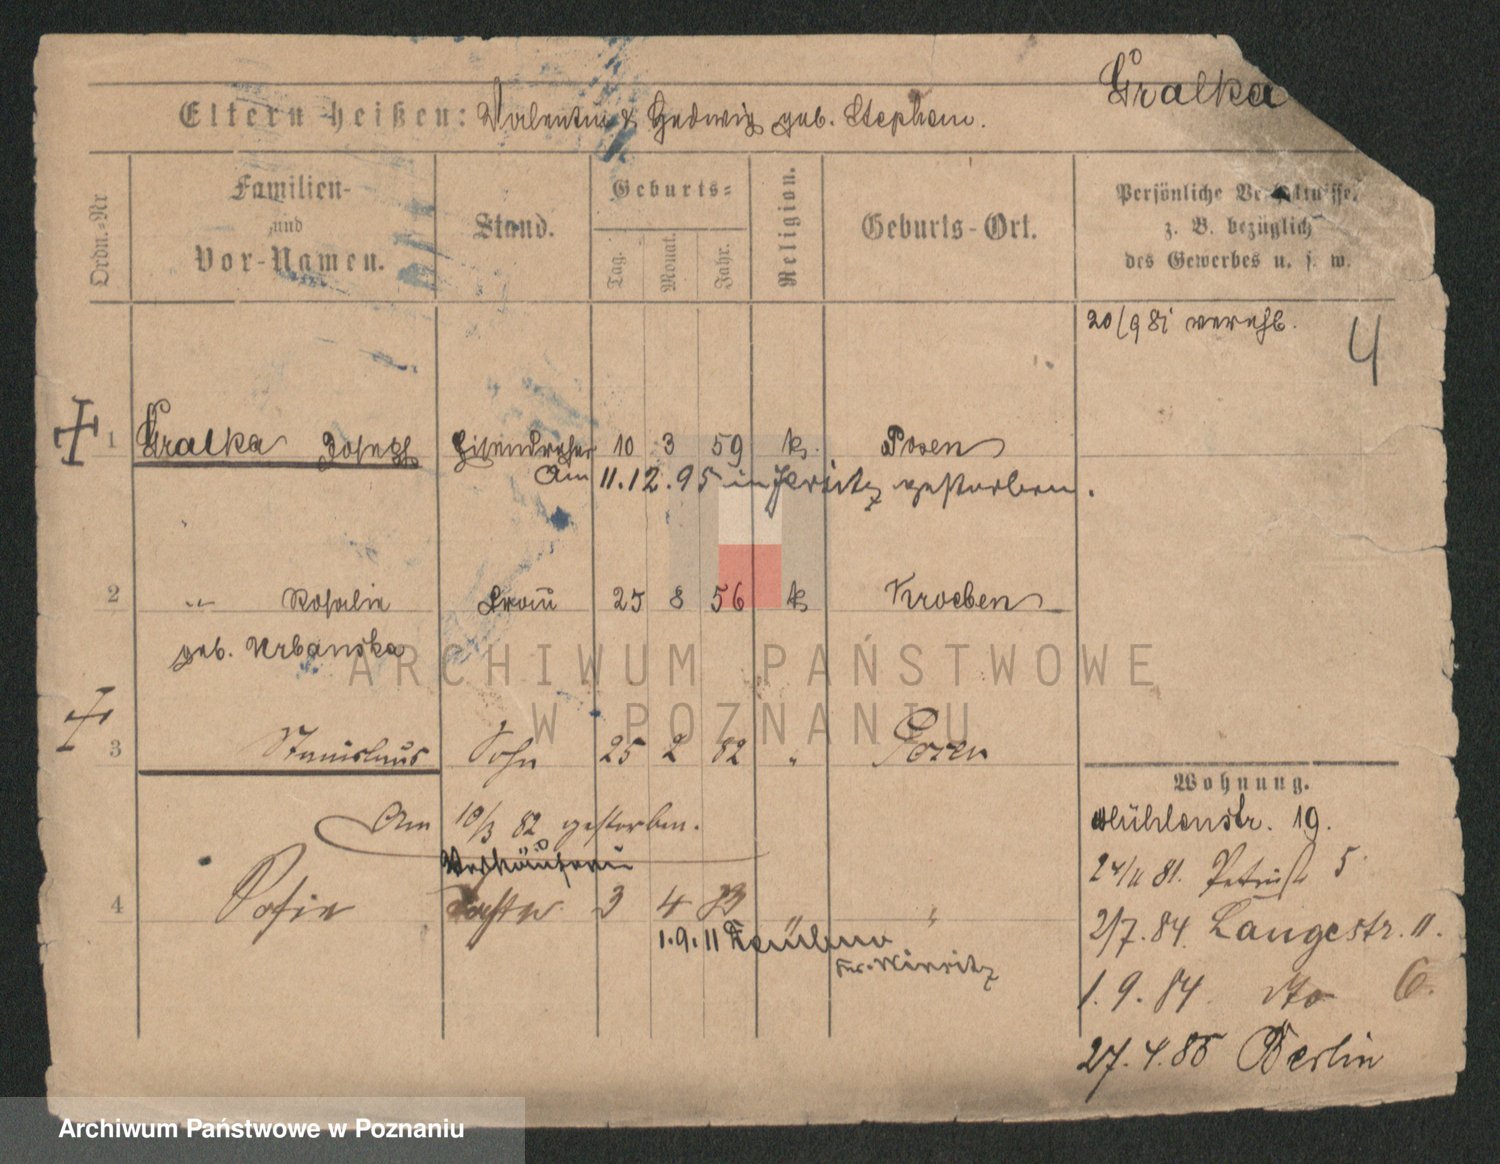 Gralka
Eltern heißen: Valentin & Hedwig geb. Stephan.
Ordn.-Nr
Familien-
und
Vor-Namen.
Stand.
Geburts-
Tag.
Monat.
Jahr.
Religion.
Geburts-Ort.
Persönliche
z. B. bezüglich
des Gewerbes u. s. w.
20/9 81 verehl.
4
1 Gralka Joseph Eisendreher 10 3 59 k. Posen
Am 11.12.95 in Jersitz gestorben.
2 " Rosalie Frau 25 8 56 k Kroeben
geb. Urbanska
ARCHIWUM PAŃSTWOWE
W POZNANIU
3 Stanislaus Sohn 25 2 82 " Posen
Wohnung.
Am 10/3 82 gestorben.
Mühlenstr. 19.
Verkäuferin
24/11 81. Petristr 5
4 Sofie Tochter 3 4 83 "
2/7. 84. Langestr. 11.
1.9.11
Kr.
1. 9. 84 dto 6.
27. 4. 85 Berlin
Archiwum Państwowe w Poznaniu